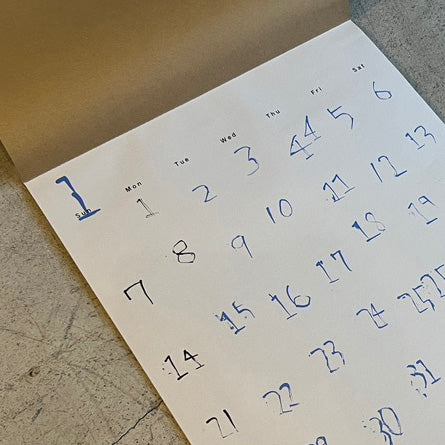 1
Sun Mon Tue Wed Thu Fri Sat
1 2 3 44 5 6
7 8 9 10 11 12 13
14 15 16 17 18 19
21 22 23 24 25 25
30 31